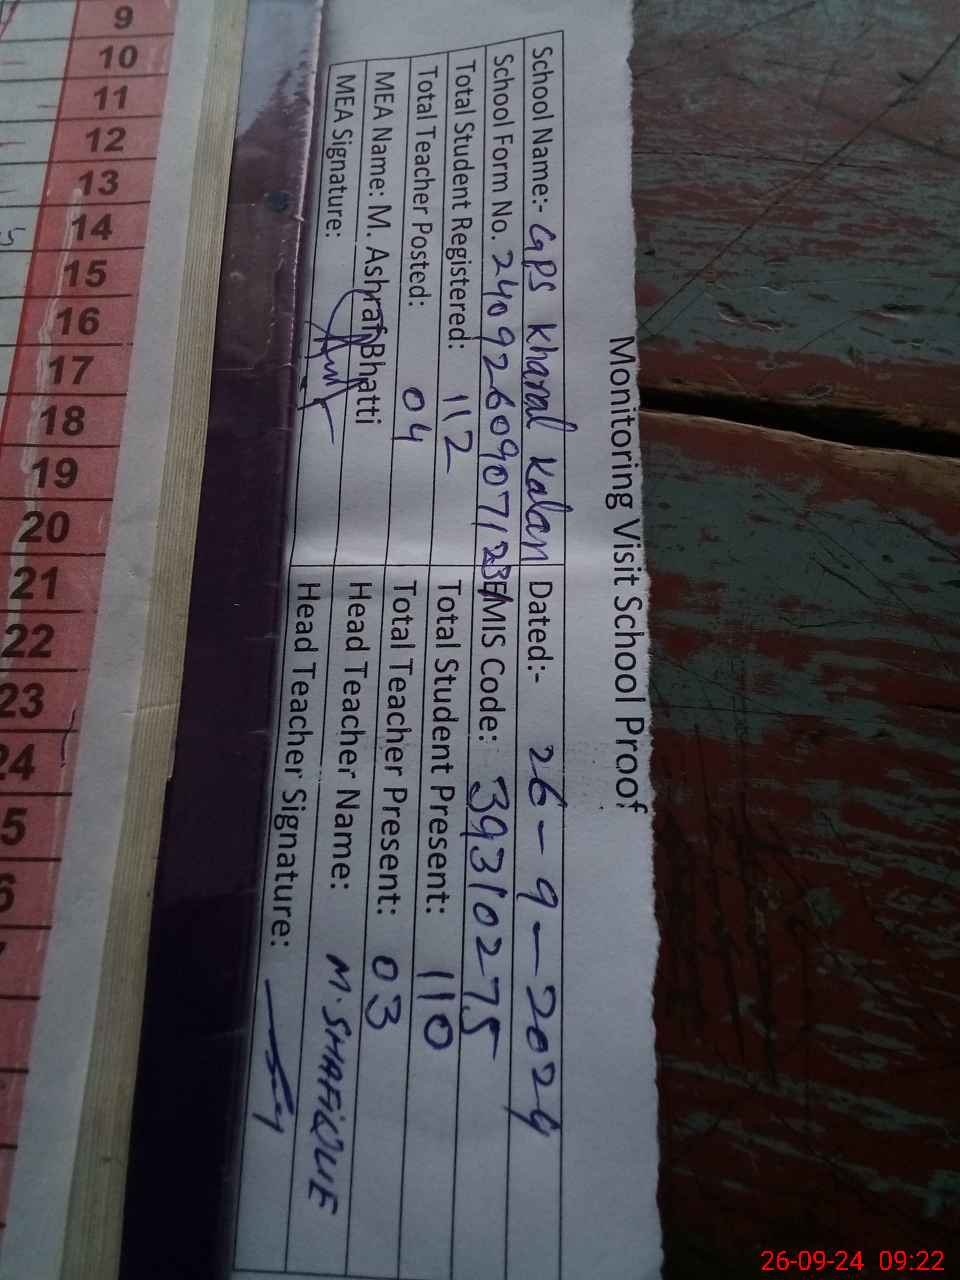 Monitoring Visit School Proof
School Name:- GPS Kharal Kalan Dated:- 26-9-2024
School Form No. 2409260907123 EMIS Code: 39310275
Total Student Registered: 112 Total Student Present: 110
Total Teacher Posted: 04 Total Teacher Present: 03
MEA Name: M. Ashraf Bhatti Head Teacher Name: M. SHAFIQUE
MEA Signature: Head Teacher Signature:
9
10
11
12
13
14
15
16
17
18
19
20
21
22
23
24
26-09-24 09:22